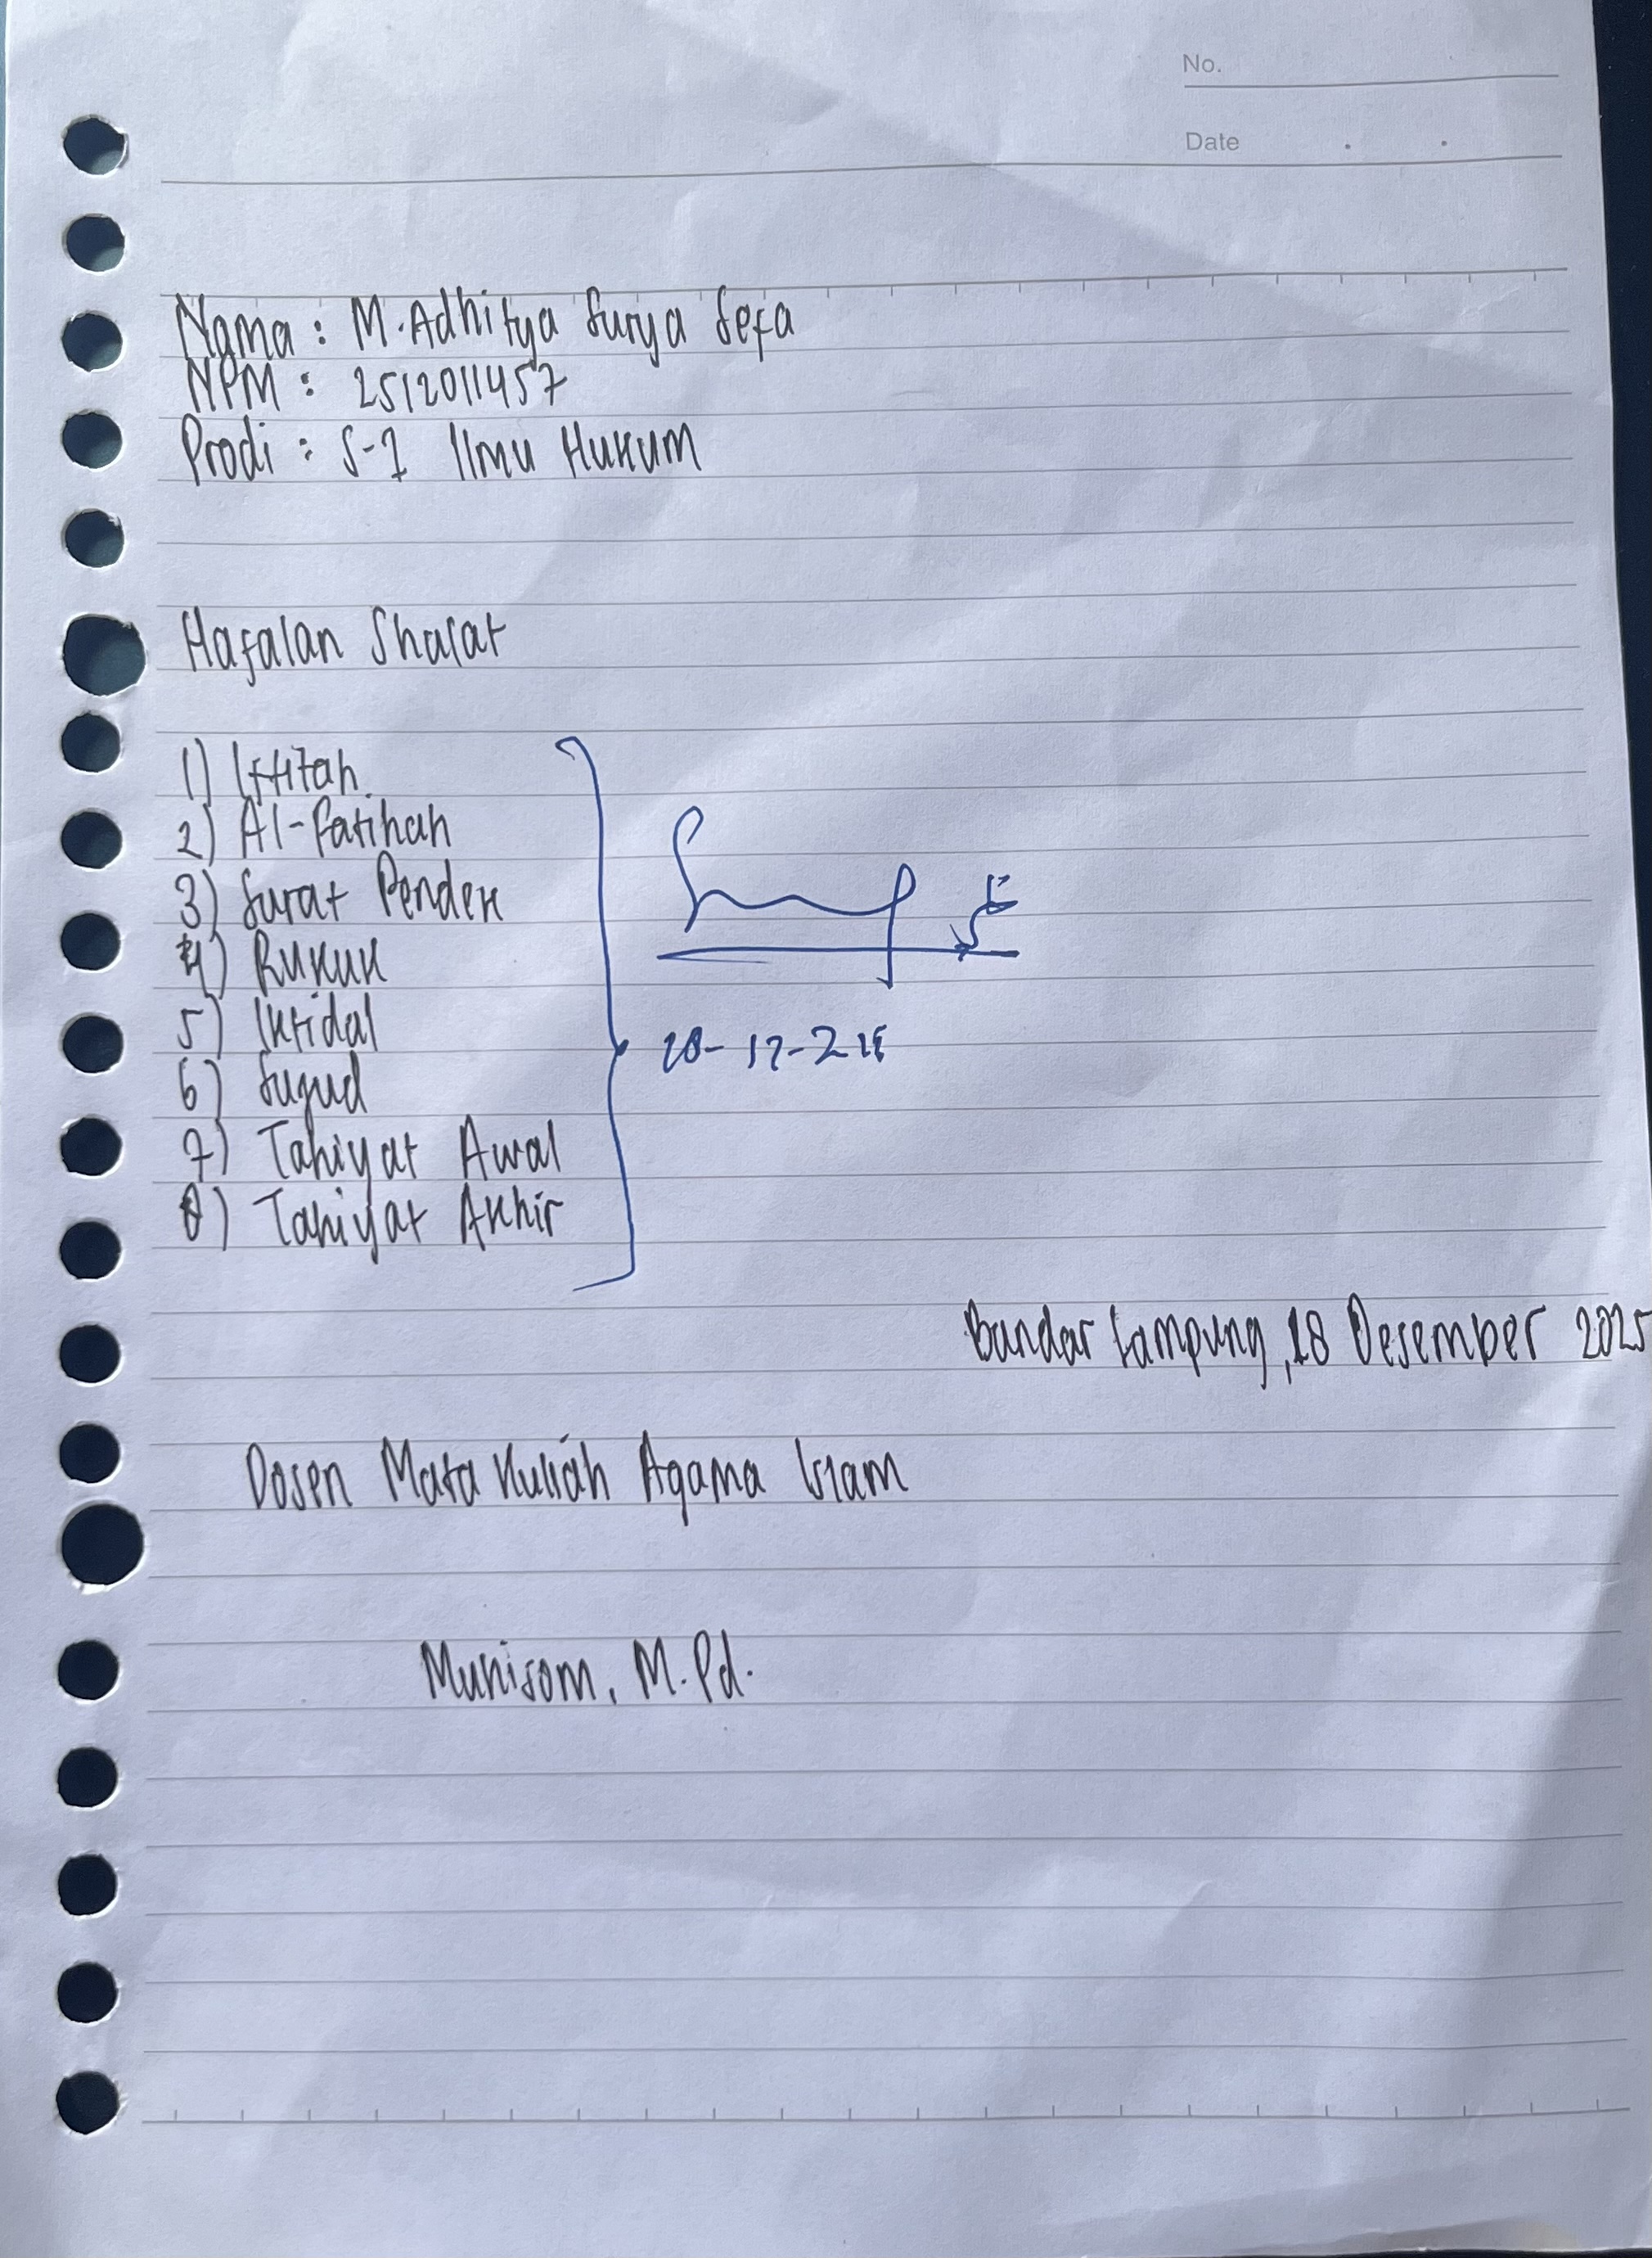 No.
Date
Nama : M. Adhitya Surya Sefa
NPM : 2512011457
Prodi : S-1 Ilmu Hukum
Hafalan Shalat
1) Iftitah
2) Al-Fatihah
3) Surat Pendek
4) Rukuk
5) Iktidal
6) Sujud
7) Tahiyat Awal
8) Tahiyat Akhir
Bandar Lampung, 18 Desember 2025
Dosen Mata Kuliah Agama Islam
Munisom, M.Pd.